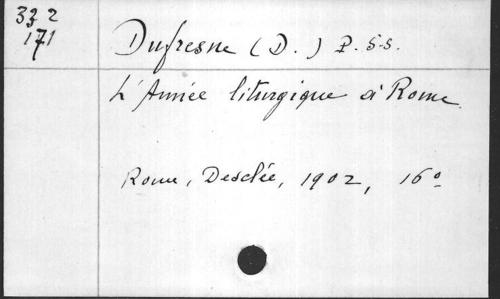 332
171
Dufresne (D.) P. S. S.
L'Année liturgique à Rome
Rome, Desclée, 1902, 16º